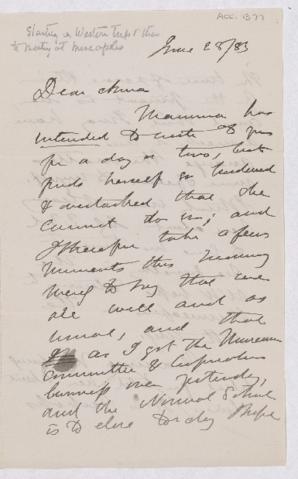 ACC. 1377
Starting a Western trip & then
to meeting at Minneapolis
June 28/83
Dear Anna
Mamma has
intended to write to you
for a day or two, but
finds herself so burdened
& overtasked that she
cannot do so; and
I therefore take a few
moments this morning
merely to say that we are
all well and as
usual, and that
as I got the Museum
Committee & Corporation
business over yesterday,
and the Normal School
is to close to day I hope